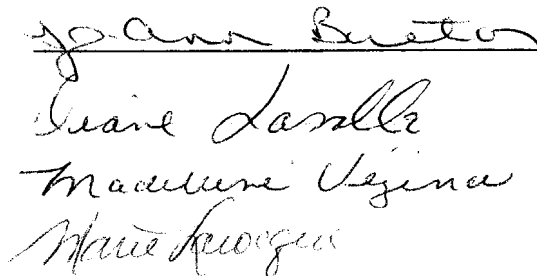 Jo-Ann Breton
Diane Lasalle
Madeleine Vezina
Marie